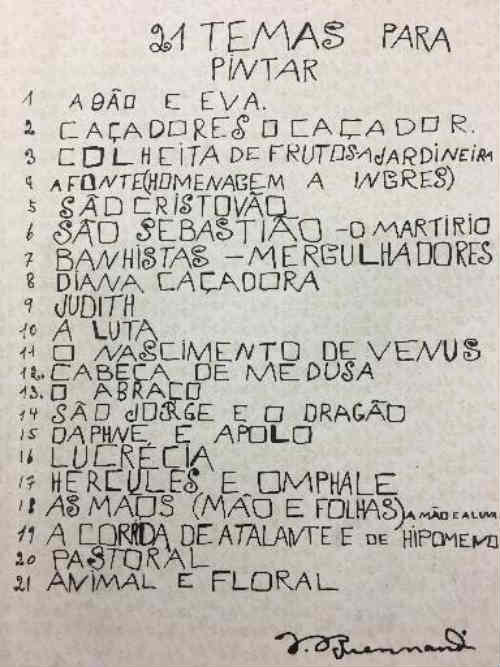 21 TEMAS PARA
PINTAR
1 ADÃO E EVA.
2 CAÇADORES O CAÇADOR.
3 COLHEITA DE FRUTOS A JARDINEIRA
4 A FONTE (HOMENAGEM A INGRES)
5 SÃO CRISTOVÃO
6 SÃO SEBASTIÃO - O MARTIRIO
7 BANHISTAS - MERGULHADORES
8 DIANA CAÇADORA
9 JUDITH
10 A LUTA
11 O NASCIMENTO DE VENUS
12. CABEÇA DE MEDUSA
13. O ABRAÇO
14 SÃO JORGE E O DRAGÃO
15 DAPHNE E APOLO
16 LUCRÉCIA
17 HERCULES E OMPHALE
18 AS MÃOS (MÃO E FOLHAS) A MÃO E A LUVA
19 A CORRIDA DE ATALANTE E DE HIPOMENO
20 PASTORAL
21 ANIMAL E FLORAL
Brennand